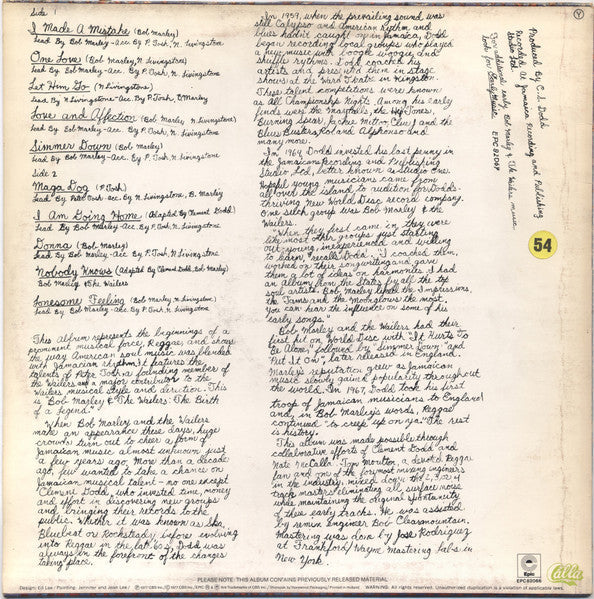 Side 1
I Made A Mistake (Bob Marley)
Lead By Bob Marley-Acc. By P. Tosh, N. Livingstone
One Love (Bob Marley, N. Livingstone)
Lead By Bob Marley-Acc. By P. Tosh, N. Livingstone
Let Him Go (N. Livingstone)
Lead By N. Livingstone-Acc. By P. Tosh, B. Marley
Love and Affection (Bob Marley N. Livingstone)
Lead By Bob Marley-Acc. By P. Tosh, N. Livingstone
Simmer Down (Bob Marley)
Lead By Bob Marley-Acc. By P. Tosh, N. Livingstone
Side 2
Maga Dog (P. Tosh)
Lead By Peter Tosh-acc. By N. Livingstone, B. Marley
I Am Going Home (Adapted By Clement Dodd)
Lead By Bob Marley-Acc. By P. Tosh, N. Livingstone
Donna (Bob Marley)
Lead By Bob Marley-Acc. By P. Tosh N. Livingstone
Nobody Knows (Adapted By Clement Dodd, Bob Marley)
Bob Marley & The Wailers
Lonesome Feeling (Bob Marley, N. Livingstone)
Lead By Bob Marley-Acc. By P. Tosh, N. Livingstone
This Album represents the beginnings of a
prominent musical force, Reggae, and shows
the way American soul music was blended
with Jamaican rhythms. It features the
talents of Peter Tosh, a founding member of
the Wailers and a major contributor to the
Wailers musical style and direction. This
is "Bob Marley & The Wailers: The Birth
of a Legend."
When Bob Marley and the Wailers
make an appearance these days, huge
crowds turn out to cheer a form of
Jamaican music almost unknown just
a few years ago. More than a decade
ago, few wanted to take a chance on
Jamaican musical talent - no one except
Clement Dodd, who invested time, money
and effort in discovering new groups
and bringing their records to the
public. Whether it was known as Ska,
Bluebeat or Rocksteady before evolving
into Reggae in the late 60's, Dodd was
always in the forefront of the changes
taking place.
In 1959, when the prevailing sound was
still Calypso and American rhythm and
blues hadn't caught on in Jamaica, Dodd
began recording local groups who played
a new music with boogie woogie and
shuffle rhythms. Dodd coached his
artists and presented them in stage
shows at the Ward Theatre in Kingston.
These talent competitions were known
as All Championship Nights. Among his early
finds were the Maytals, the HepTones,
Burning Spear, Jackie Mittoo, Clive and the
Blues Busters, Roland Alphonso and
many more.
In 1964 Dodd invested his last penny in
the Jamaican Recording and Publishing
Studio Ltd, better known as Studio One.
Hopeful young musicians came from
all over the island to audition for Dodd's
thriving New World Disc record company.
One such group was Bob Marley & the
Wailers.
"When they first came in, they were
like most other groups just starting
out-young, inexperienced and willing
to learn," recalls Dodd. "I coached them,
worked on their songwriting and gave
them a lot of ideas on harmonies. I had
an Album from the States by all the top
soul artists. Bob Marley liked the Impressions,
the Tams and the Moonglows the most.
You can hear the influence on some of his
early songs."
Bob Marley and the Wailers had their
first hit on World Disc with "It Hurts To
Be Alone" followed by "Simmer Down" and
"Put It On" later released in England.
Marley's reputation grew as Jamaican
music slowly gained popularity throughout
the world. In 1967, Dodd took his first
troop of Jamaican musicians to England
and, in Bob Marley's words, Reggae
continued "to creep up on ya." The rest
is history.
This album was made possible through
collaborative efforts of Clement Dodd and
Nate McCalla. Tom Moulton, a devoted Reggae
fan and one of the foremost mixing engineers
in the industry, mixed down the 2, 3, or 4
track masters eliminating all surface noise
while maintaining the original spontaneity
of these early tracks. He was assisted
by remix Engineer Bob Clearmountain.
Mastering was done by Jose Rodriguez
at Frankford/Wayne Mastering Labs in
New York.
Produced By C.S. Dodd
Recorded At Jamaica Recording and Publishing
Studio Ltd.
For additional early Bob Marley & The Wailers music
look for Early Music EPC 82067
Y
54
PLEASE NOTE: THIS ALBUM CONTAINS PREVIOUSLY RELEASED MATERIAL
Design: Ed Lee / Painting: Jennifer and Jose Lee /
Epic
EPC82066
Calla